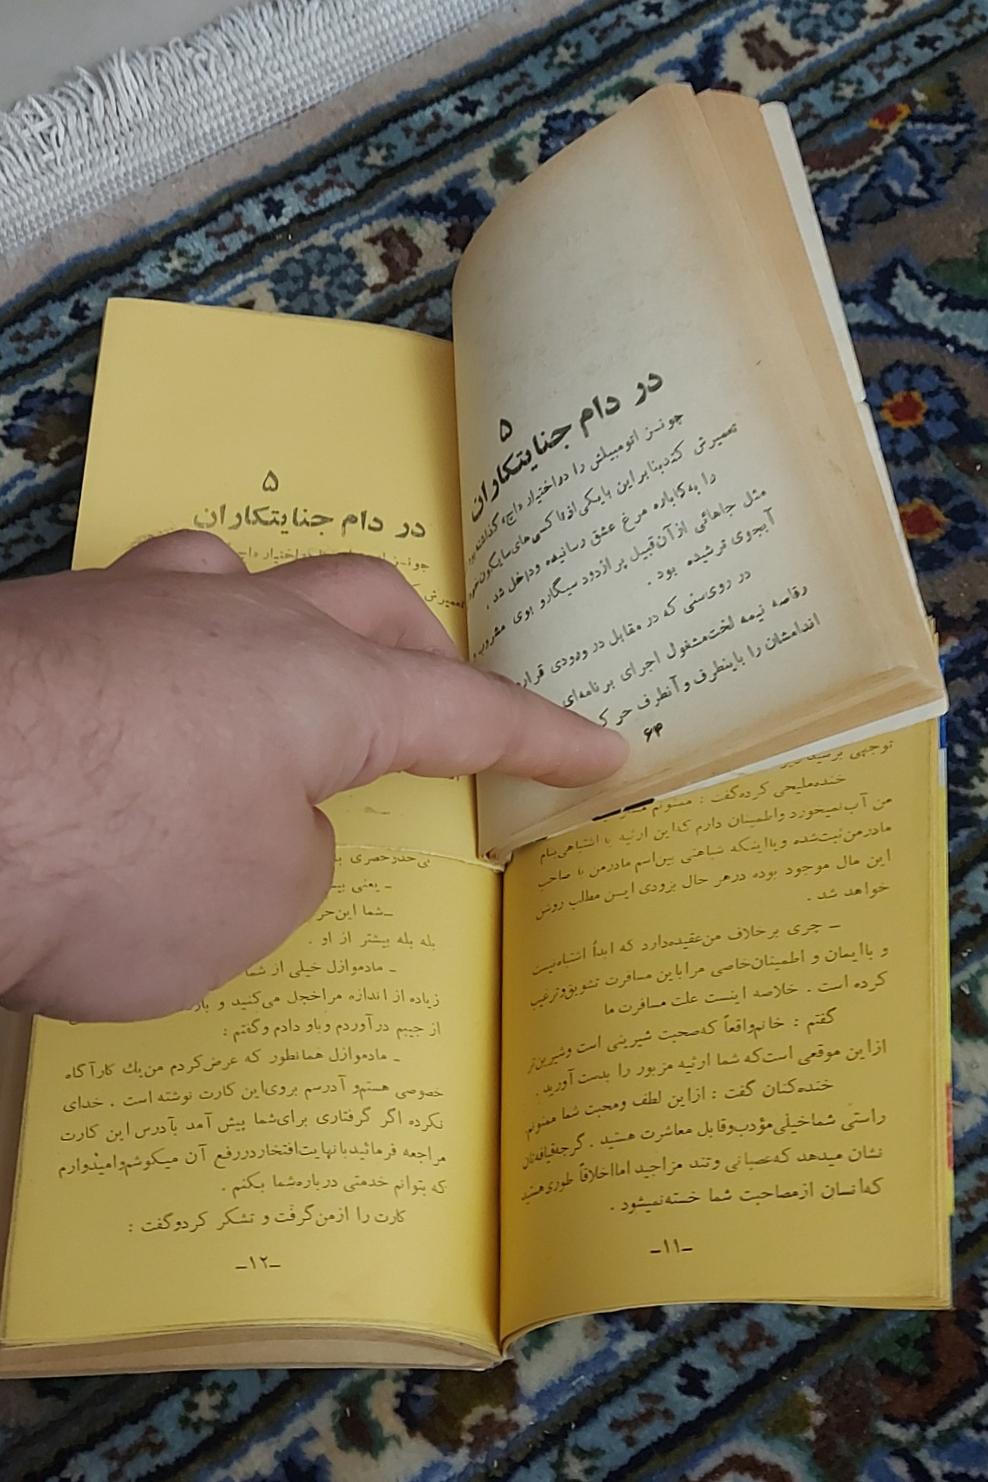 ۵
در دام جنایتکاران
جونـز اتومبیلش را دراختیار «اچ» گذاشته بود
تعمیرش کند بنابراین بایکی از تاکسی‌های سایگون خود
را به کاباره مرغ عشق رسانیده وداخل شد .
مثل جاهائی از آن‌قبیل پر از دود سیگار و بوی مشروب و
آبجوی ترشیده بود .
در روی سنی که در مقابل در ورودی قرار
رقاصه نیمه لخت مشغول اجرای برنامه‌ای
اندامشان را باینطرف و آنطرف حر
۶۴
۵
در دام جنایتکاران
جونـز
تعمیرش
توجهی
خنده‌ملیحی کرده‌گفت : ممنونم
من آب نمیخورد واطمینان دارم که‌این ارثیه با اشتباهی بنام
مادرمن ثبت‌شده ویا اینکه شباهتی بین اسم مادرمن با صاحب
این مال موجود بوده درهر حال بزودی ایـن مطلب روشن
خواهد شد .
ـ جری برخلاف من‌عقیده‌دارد که ابداً اشتباه‌نیست
و باایمان و اطمینان خاصی مرا باین مسافرت تشویق و ترغیب
کرده است . خلاصه اینست علت مسافرت ما
گفتم : خانم‌واقعاً که‌صحبت شیرینی است وشیرین‌تر
ازاین موقعی است‌که شما ارثیه مزبور را بدست آورید .
خنده‌کنان گفت : ازاین لطف ومحبت شما ممنونم
راستی شماخیلی مؤدب وقابل معاشرت هستید . گرچه‌قیافه‌تان
نشان میدهد که‌عصبانی وتند مزاجید امااخلاقاً طوری هستید
که‌انسان ازمصاحبت شما خسته‌نمیشود .
ـ۱۱ـ
بی‌حدوحصری
ـ یعنی
ـ شما این حر
بله بله بیشتر از او .
ـ مادموازل خیلی از شما
زیاده از اندازه مراخجل می‌کنید و
از جیبم درآوردم وباو دادم وگفتم :
ـ مادموازل همانطور که عرض‌کردم من‌یك کارآگاه
خصوصی هستم‌و آدرسم بروی‌این کارت نوشته است . خدای
نکرده اگر گرفتاری برای‌شما پیش آمد بآدرس این کارت
مراجعه فرمائید بانهایت‌افتخاردررفع آن میکوشم‌وامیدوارم
که بتوانم خدمتی درباره‌شما بکنم .
کارت را ازمن‌گرفت و تشکر کردوگفت :
ـ۱۲ـ